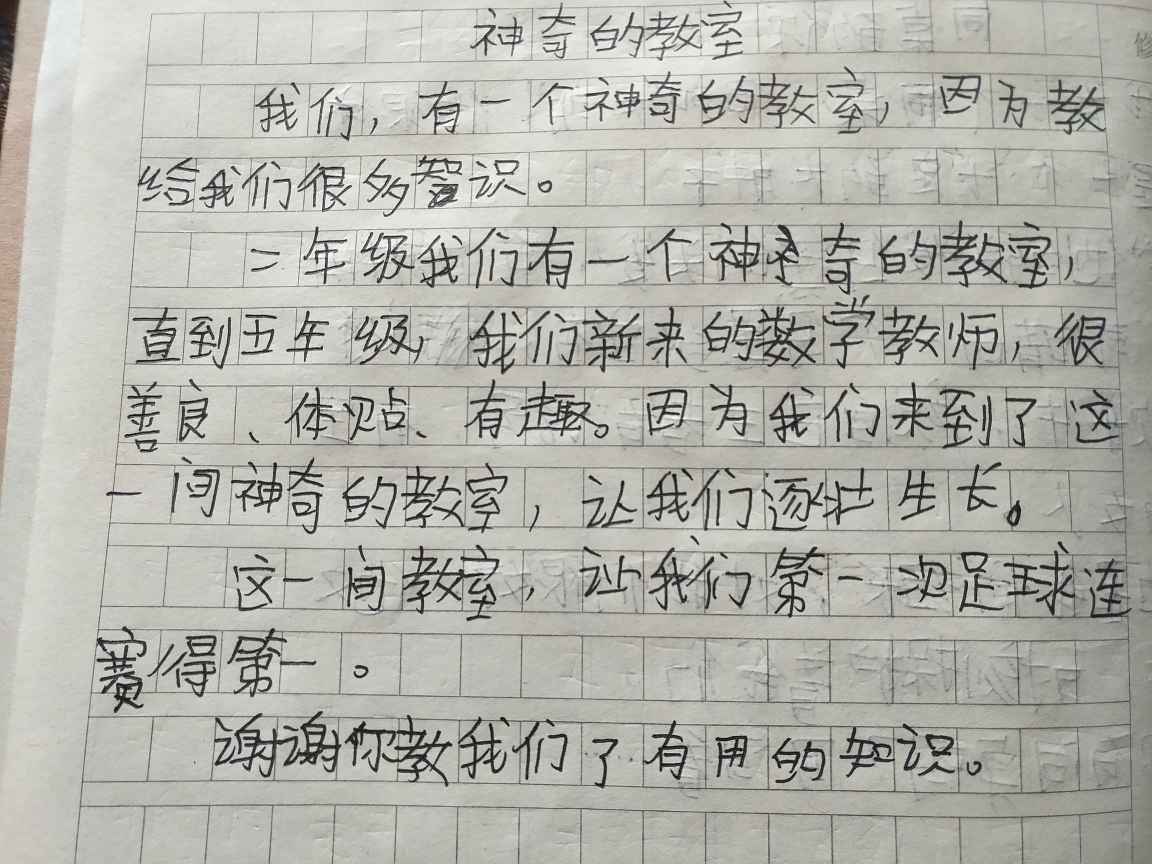 神奇的教室
我们，有一个神奇的教室，因为教
给我们很多智识。
二年级我们有一个神奇的教室，
直到五年级，我们新来的数学教师，很
善良、体贴、有趣。因为我们来到了这
一间神奇的教室，让我们逐壮生长。
这一间教室，让我们第一次足球连
赛得第一。
谢谢你教我们了有用的知识。